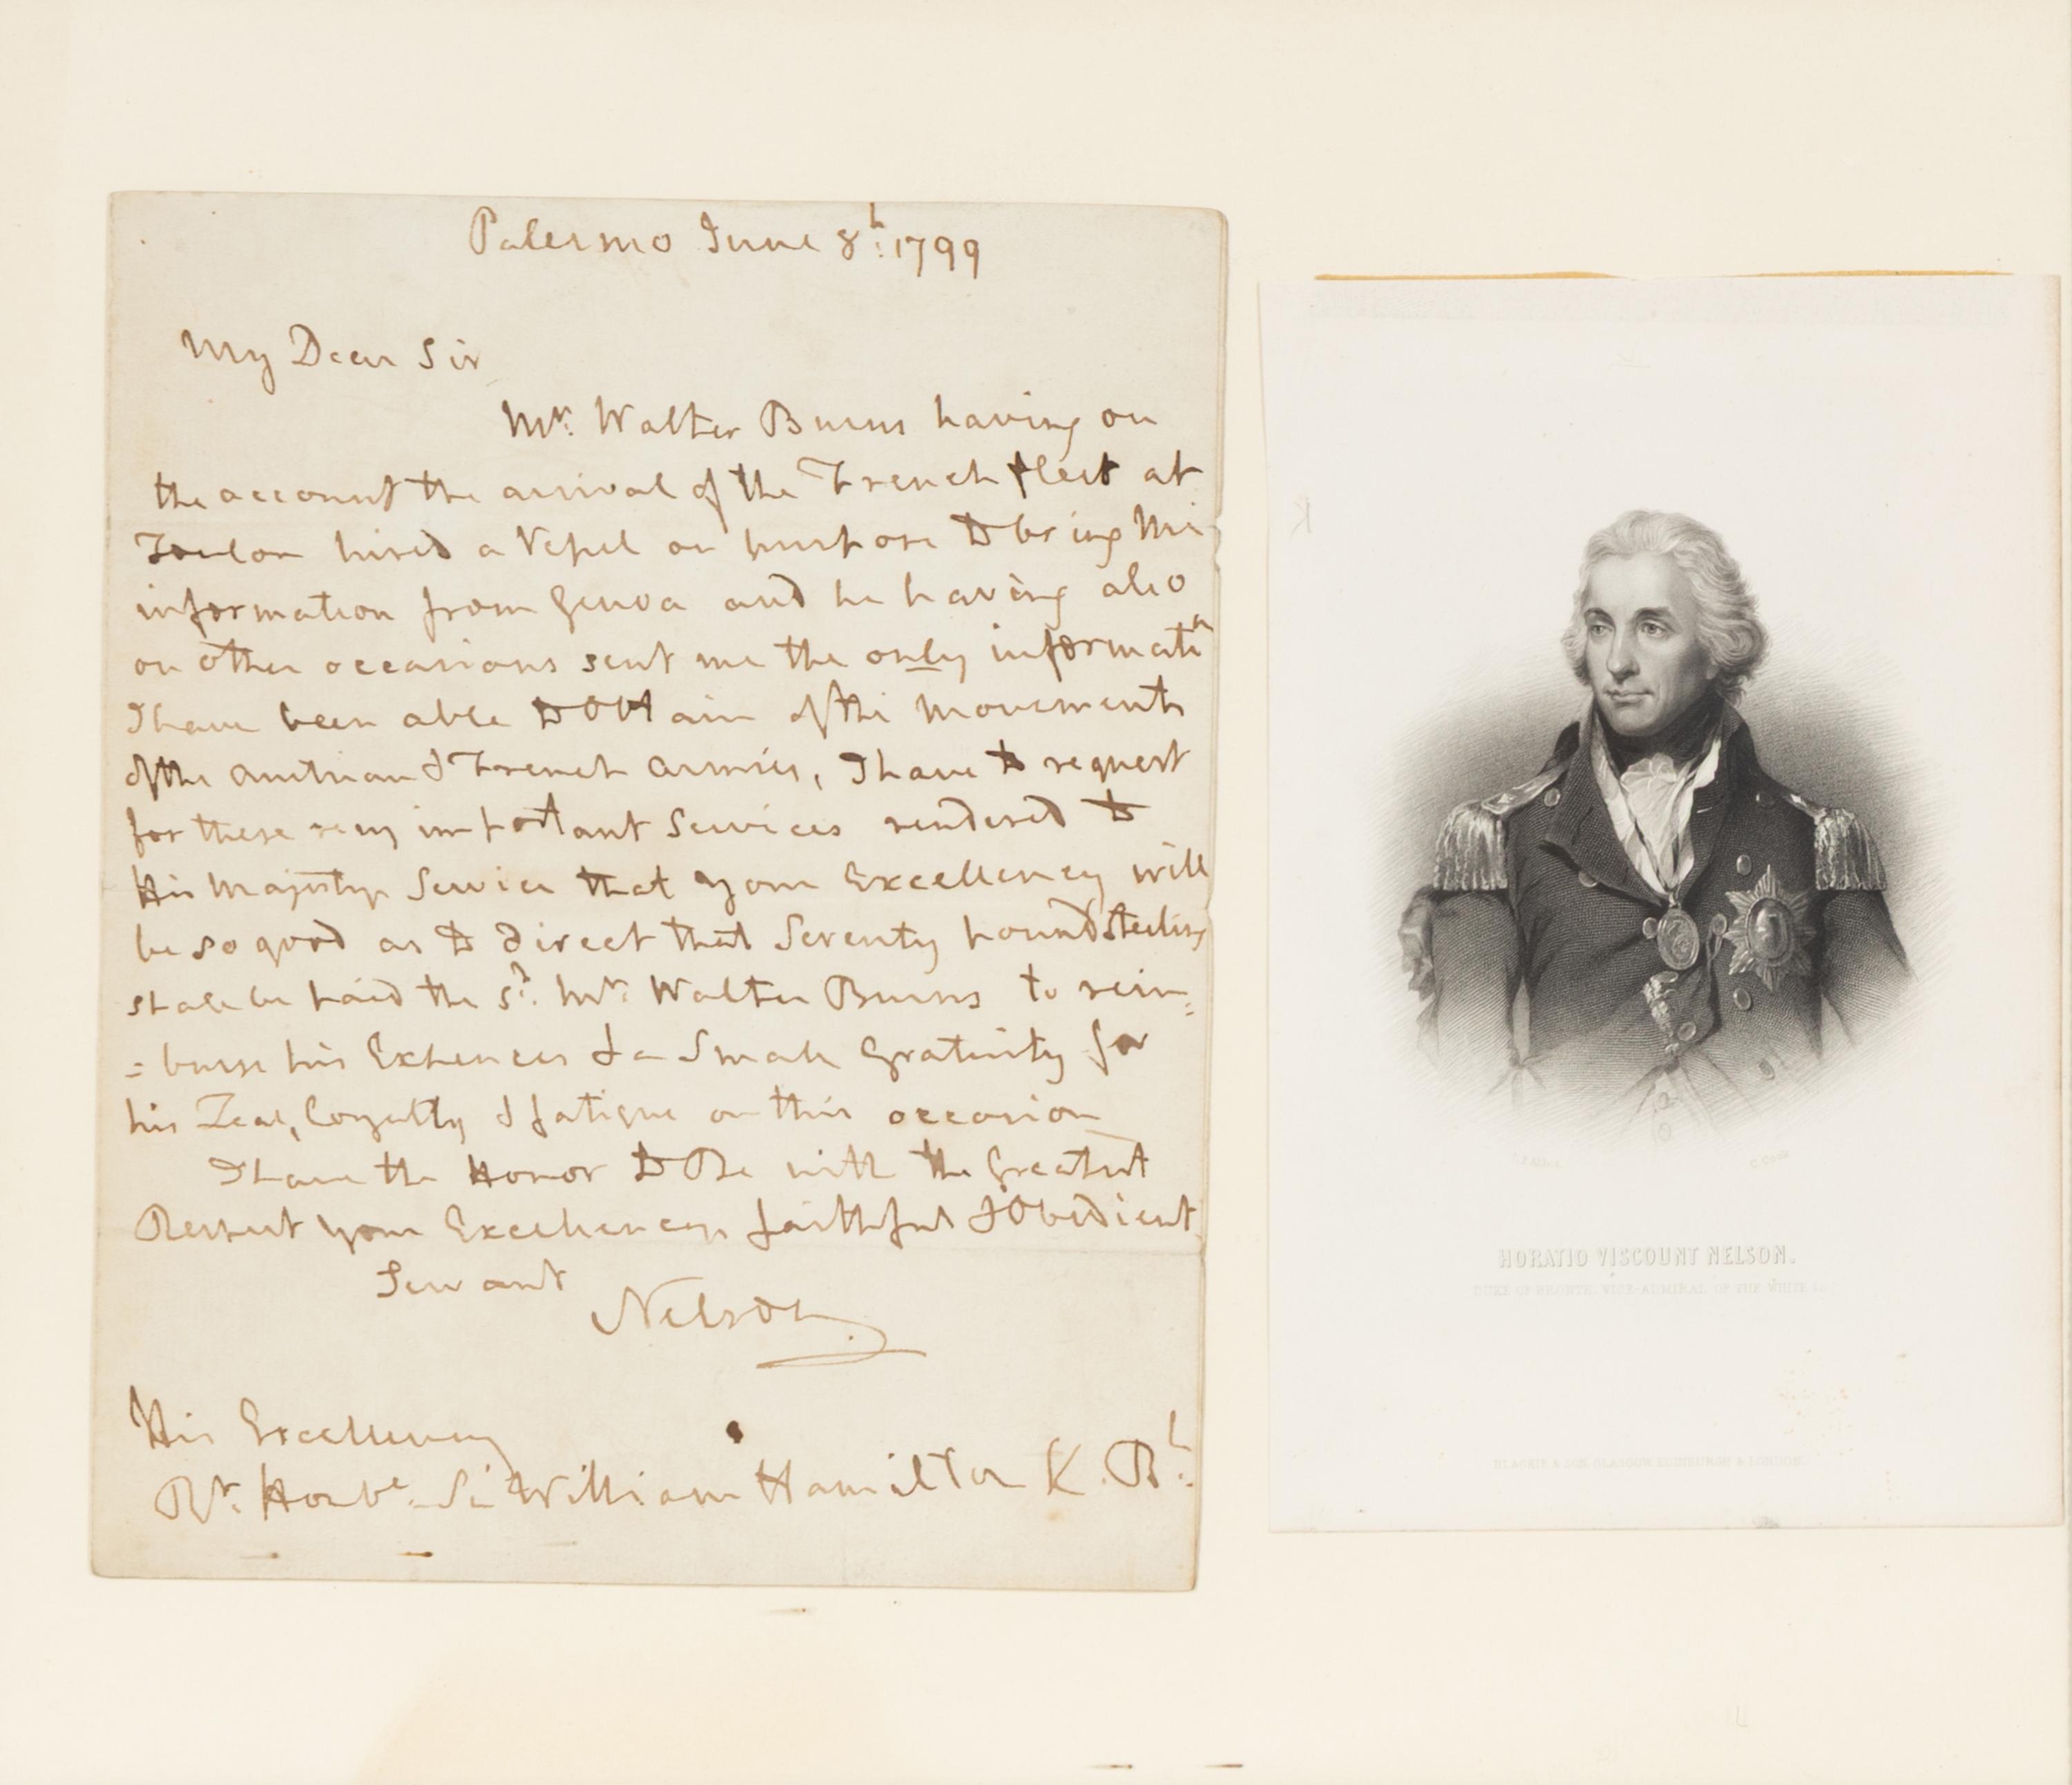 Palermo June 8th: 1799
My Dear Sir
Mr: Walter Burns having on
the account the arrival of the French fleet at
Toulon hired a Vessel on purpose to bring Me
information from Genoa and he having also
on other occasions sent me the only informatn
I have been able to obtain of the movements
of the Austrian & French Armies, I have to request
for these very important Services rendered to
His Majestys Service that your Excellency will
be so good as to direct that Seventy pounds sterling
shall be paid the sd: Mr: Walter Burns to reim=
=burse his Expences & a Small Gratuity for
his Zeal, Loyalty & fatigue on this occasion
I have the Honor to Be with the Greatest
Respect your Excellencys faithful & Obedient
Servant
Nelson
His Excellency
Rt: Honble Sir William Hamilton K. Bh:
HORATIO VISCOUNT NELSON.
DUKE OF BRONTE, VICE-ADMIRAL OF THE WHITE
C. Cook
BLACKIE & SON, GLASGOW, EDINBURGH & LONDON.